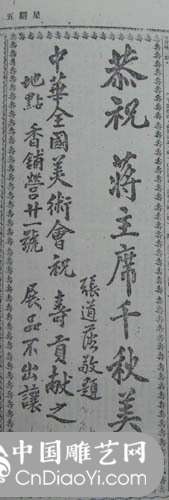 五期星
恭祝 蔣主席千秋美
張道藩敬題
中華全國美術會祝 壽貢獻之
地點 香鋪營廿一號 展品不出讓
中国雕艺网
CnDiaoYi.com